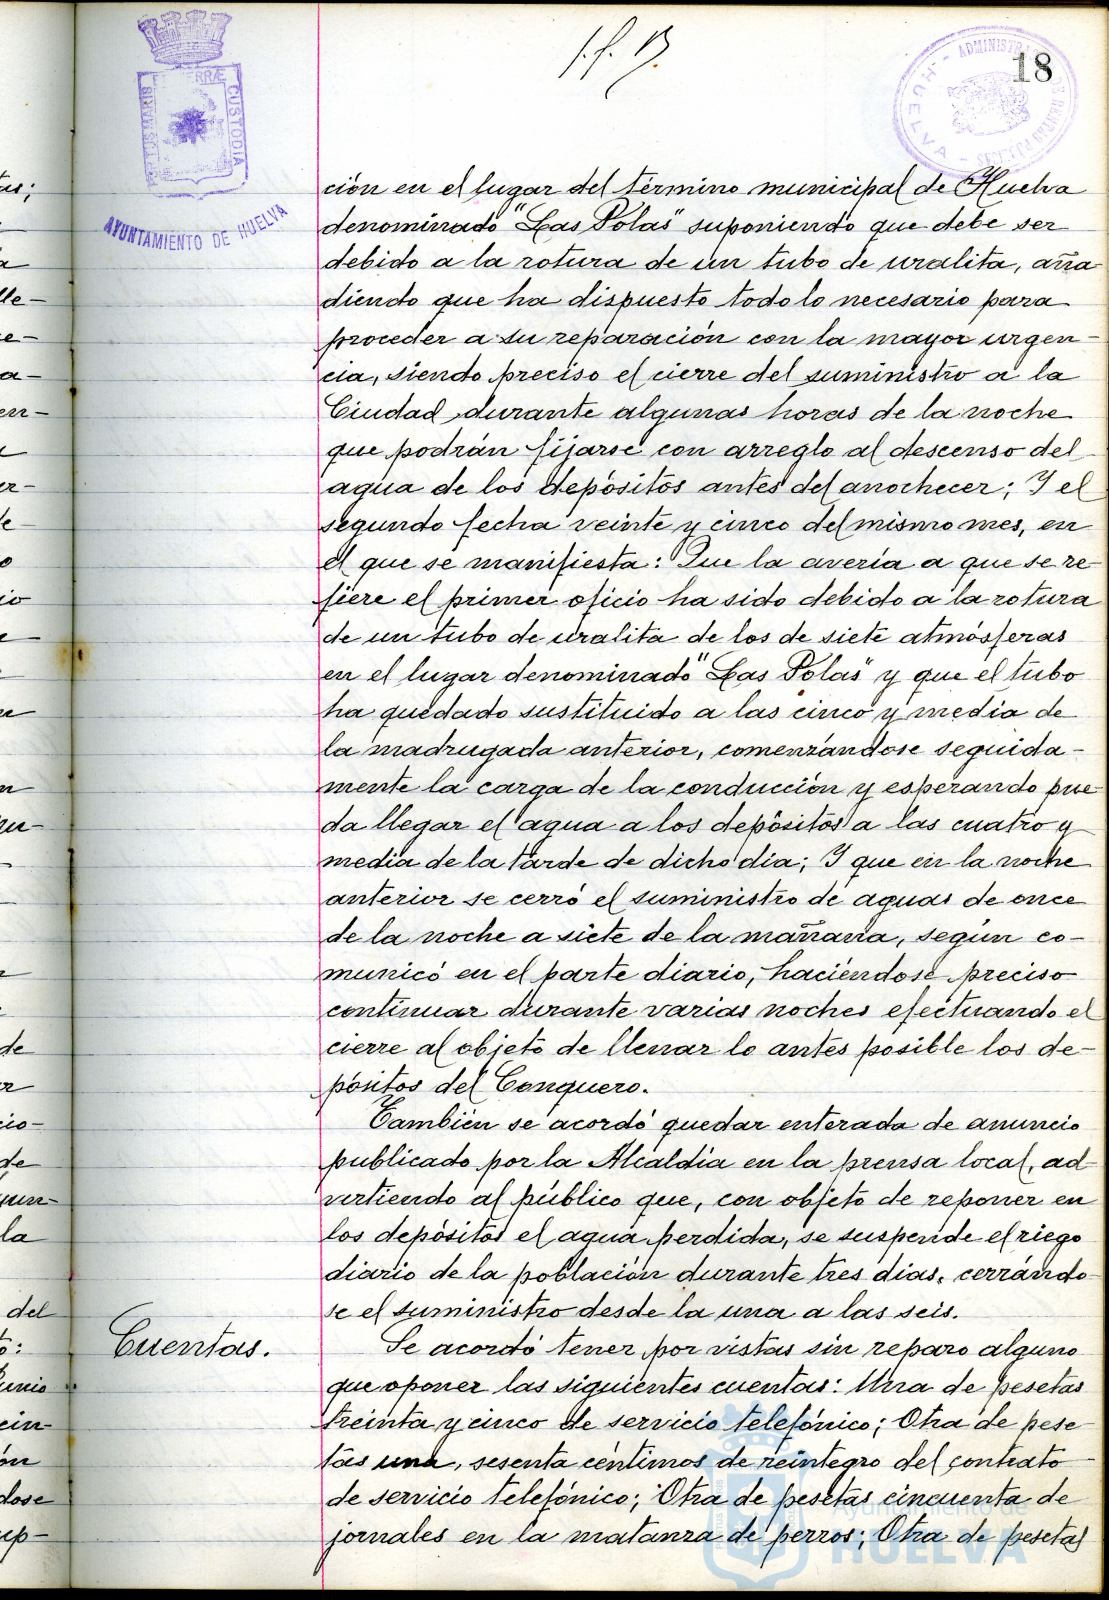 18
PORTUS MARIS ET TERRÆ CUSTODIA
AYUNTAMIENTO DE HUELVA
ción en el lugar del término municipal de Huelva
denominado "Las Polas" suponiendo que debe ser
debido a la rotura de un tubo de uralita, aña
diendo que ha dispuesto todo lo necesario para
proceder a su reparación con la mayor urgen-
cia, siendo preciso el cierre del suministro a la
Ciudad durante algunas horas de la noche
que podrán fijarse con arreglo al descenso del
agua de los depósitos antes del anochecer; Y el
segundo fecha veinte y cinco del mismo mes, en
el que se manifiesta: Que la avería a que se re-
fiere el primer oficio ha sido debido a la rotura
de un tubo de uralita de los de siete atmósferas
en el lugar denominado "Las Polas" y que el tubo
ha quedado sustituido a las cinco y media de
la madrugada anterior, comenzándose seguida-
mente la carga de la conducción y esperando pue-
da llegar el agua a los depósitos a las cuatro y
media de la tarde de dicho día; Y que en la noche
anterior se cerró el suministro de aguas de once
de la noche a siete de la mañana, según co-
municó en el parte diario, haciéndose preciso
continuar durante varias noches efectuando el
cierre al objeto de llenar lo antes posible los de-
pósitos del Conquero.
También se acordó quedar enterada de anuncio
publicado por la Alcaldía en la prensa local, ad-
virtiendo al público que, con objeto de reponer en
los depósitos el agua perdida, se suspende el riego
diario de la población durante tres días, cerrándo-
se el suministro desde la una a las seis.
Cuentas.
Se acordó tener por vistas sin reparo alguno
que oponer las siguientes cuentas: Una de pesetas
treinta y cinco de servicio telefónico; Otra de pese-
tas una, sesenta céntimos de reintegro del contrato
de servicio telefónico; Otra de pesetas cincuenta de
jornales en la matanza de perros; Otra de pesetas
Ayuntamiento de
HUELVA